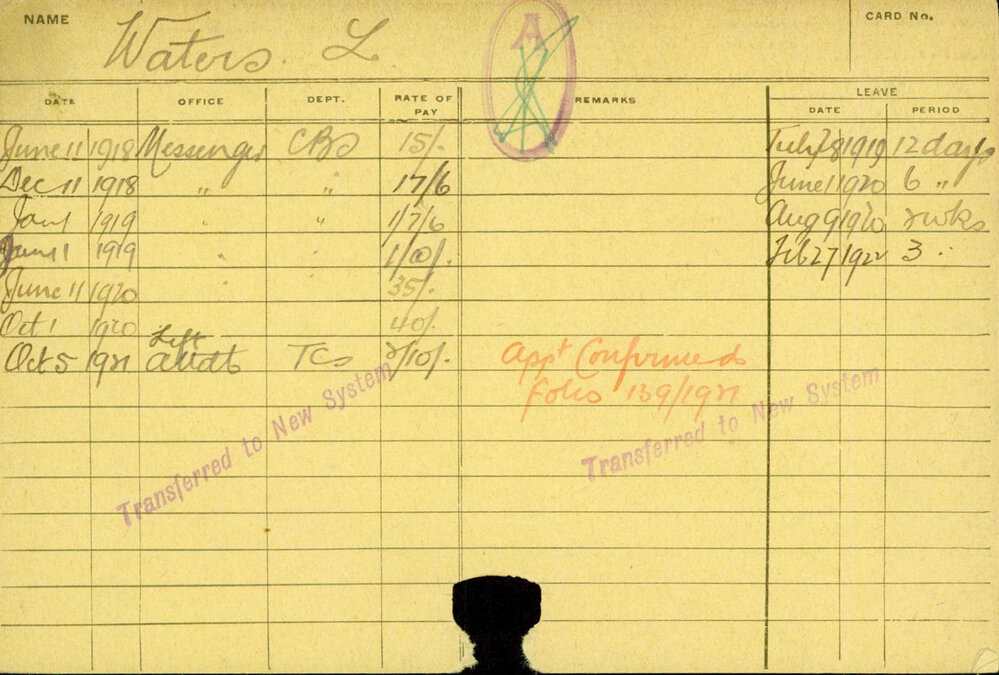 NAME
CARD No.
Waters. L
A
DATE OFFICE DEPT. RATE OF PAY REMARKS LEAVE
DATE PERIOD
June 11 1918 Messenger CBS 15/. July 28 1919 12 days
Dec 11 1918 " " 17/6 June 11 1920 6 "
Jan 1 1919 " " 1/7/6 Aug 9 1920 2 wks
June 1 1919 " " 1/10/. Feb 27 1922 3 "
June 11 1920 " 35/.
Oct 1 1920 40/.
Lift
Oct 5 1921 attdt TCS 2/10/. Appt Confirmed
folio 139/1921
Transferred to New System
Transferred to New System